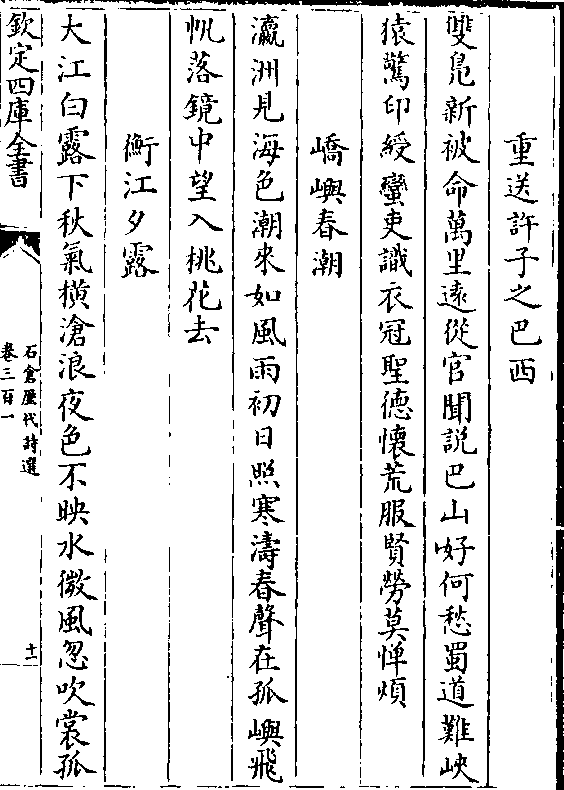 重送許子之巴西
雙鳬新被命萬里逺從官聞説巴山好何愁蜀道難峽
猿驚印綬蠻吏識衣冠聖徳懷荒服賢勞莫憚煩
嶠嶼春潮
瀛洲見海色潮來如風雨初日照寒濤春聲在孤嶼飛
帆落鏡中望入桃花去
衡江夕露
大江白露下秋氣橫滄浪夜色不映水微風忽吹裳孤
欽定四庫全書
石倉歴代詩選
卷三百一
十二